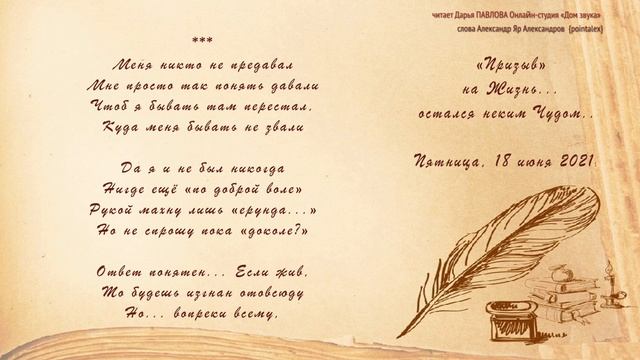 читает Дарья ПАВЛОВА Онлайн-студия «Дом звука»
слова Александр Яр Александров (pointalex)
***
Меня никто не предавал
Мне просто так понять давали
Чтоб я бывать там перестал,
Куда меня бывать не звали
Да я и не был никогда
Нигде ещё «по доброй воле»
Рукой махну лишь «ерунда...»
Но не спрошу пока «доколе?»
Ответ понятен... Если жив,
То будешь изгнан отовсюду
Но... вопреки всему,
«Призыв»
на Жизнь...
остался неким Чудом..
Пятница, 18 июня 2021.